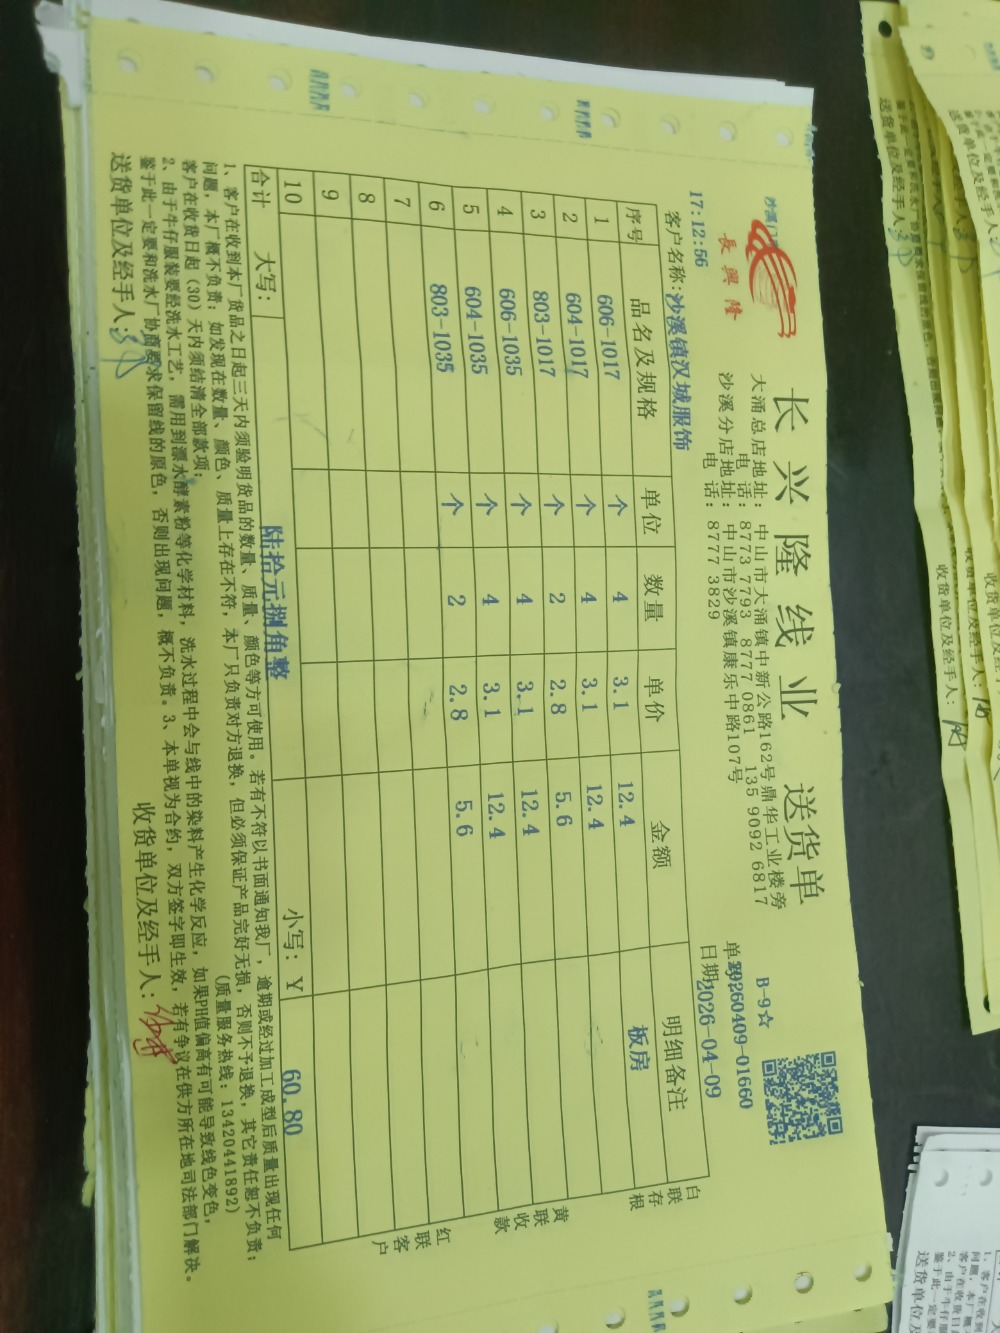 長興隆
长兴隆线业 送货单
大涌总店地址: 中山市大涌镇中新公路162号鼎华工业楼旁
电 话: 8773 7793 8777 0861 135 9092 6817
沙溪分店地址: 中山市沙溪镇康乐中路107号
电 话: 8777 3829
B-9☆
20260409-01660
日期 2026-04-09
17:12:56
客户名称: 沙溪镇汉城服饰
序号 品名及规格 单位 数量 单价 金额 明细备注
1 606-1017 个 4 3.1 12.4 板房
2 604-1017 个 4 3.1 12.4
3 803-1017 个 2 2.8 5.6
4 606-1035 个 4 3.1 12.4
5 604-1035 个 4 3.1 12.4
6 803-1035 个 2 2.8 5.6
7
8
9
10
合计 大写: 陆拾元捌角整 小写: Y 60.80
白联存根
黄联收款
红联客户
1、客户在收到本厂货品之日起三天内须验明货品的数量、质量、颜色等方可使用。若有不符以书面通知我厂, 逾期或经过加工成型后质量出现任何
问题, 本厂概不负责; 如发现在数量、颜色、质量上存在不符, 本厂只负责对方退换, 但必须保证产品完好无损, 否则不予退换, 其它责任恕不负责;
客户在收货日起(30)天内须结清全部款项; (质量服务热线: 13420441892)
2、由于牛仔服装要经洗水工艺, 需用到漂水酵素粉等化学材料, 洗水过程中会与线中的染料产生化学反应, 如果PH值偏高有可能导致线色变色,
鉴于此一定要和洗水厂协商要求保留线的原色, 否则出现问题, 概不负责。3、本单视为合约, 双方签字即生效, 若有争议在供方所在地司法部门解决。
送货单位及经手人: 收货单位及经手人: